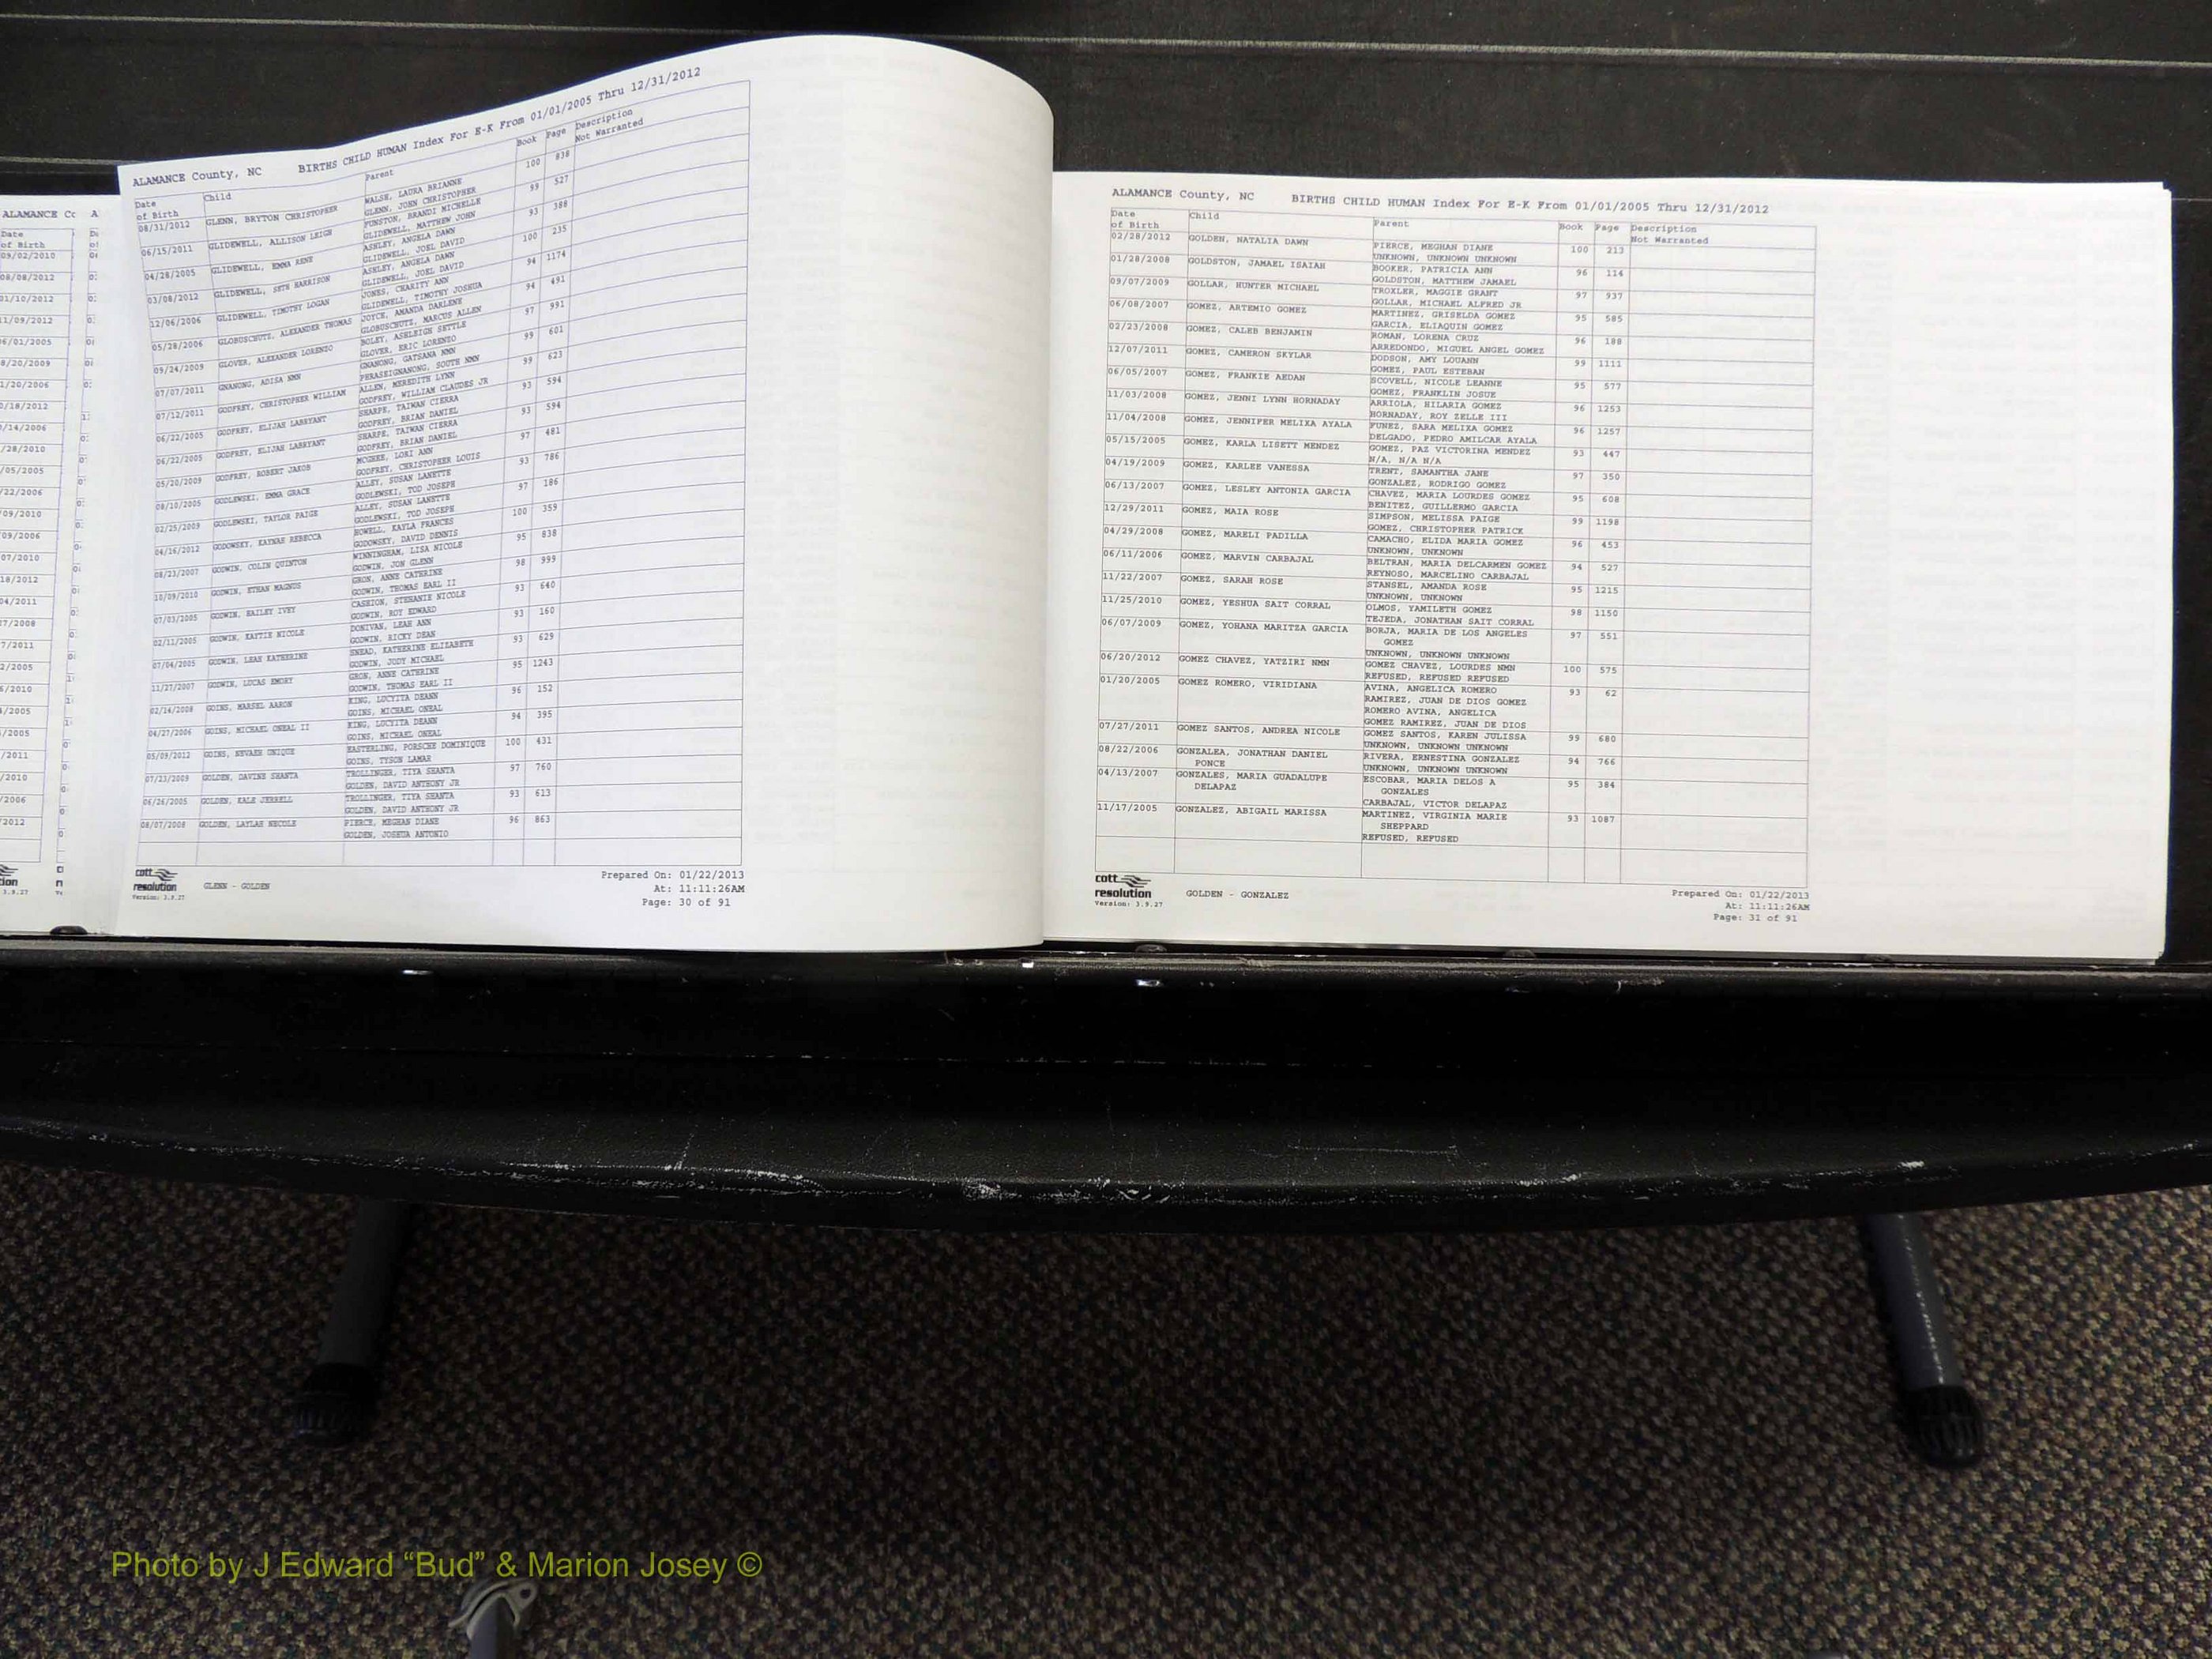 ALAMANCE Cc
Date
of Birth
09/02/2010
08/08/2012
01/10/2012
11/09/2012
6/01/2005
8/20/2009
1/20/2006
0/18/2012
/14/2006
/28/2010
/05/2005
/22/2006
/09/2010
09/2006
07/2010
18/2012
04/2011
7/2008
7/2011
2/2005
6/2010
/2005
/2005
/2011
/2010
/2006
2012
ALAMANCE County, NC BIRTHS CHILD HUMAN Index For E-K From 01/01/2005 Thru 12/31/2012
Date of Birth Child Parent Book Page Description
Not Warranted
08/31/2012 GLENN, BRYTON CHRISTOPHER WALSH, LAURA BRIANNE 100 838
GLENN, JOHN CHRISTOPHER
06/15/2011 GLIDEWELL, ALLISON LEIGH FUNSTON, BRANDI MICHELLE 99 527
GLIDEWELL, MATTHEW JOHN
04/28/2005 GLIDEWELL, EMMA RENE ASHLEY, ANGELA DAWN 93 388
GLIDEWELL, JOEL DAVID
03/08/2012 GLIDEWELL, SETH HARRISON ASHLEY, ANGELA DAWN 100 235
GLIDEWELL, JOEL DAVID
12/06/2006 GLIDEWELL, TIMOTHY LOGAN JONES, CHARITY ANN 94 1174
GLIDEWELL, TIMOTHY JOSHUA
05/28/2006 GLOBUSCHUTZ, ALEXANDER THOMAS JOYCE, AMANDA DARLENE 94 491
GLOBUSCHUTZ, MARCUS ALLEN
09/24/2009 GLOVER, ALEXANDER LORENZO BOLEY, ASHLEIGH SETTLE 97 991
GLOVER, ERIC LORENZO
07/07/2011 GNANONG, ADISA NMN GNANONG, GATSANA NMN 99 601
PHRASEIGNANONG, SOUTH NMN
07/12/2011 GODFREY, CHRISTOPHER WILLIAM ALLEN, MEREDITH LYNN 99 623
GODFREY, WILLIAM CLAUDES JR
06/22/2005 GODFREY, ELIJAH LABRYANT SHARPE, TAIWAN CIERRA 93 594
GODFREY, BRIAN DANIEL
06/22/2005 GODFREY, ELIJAH LABRYANT SHARPE, TAIWAN CIERRA 93 594
GODFREY, BRIAN DANIEL
05/20/2009 GODFREY, ROBERT JAKOB MCGHEE, LORI ANN 97 481
GODFREY, CHRISTOPHER LOUIS
08/10/2005 GODLEWSKI, EMMA GRACE ALLEY, SUSAN LANETTE 93 786
GODLEWSKI, TOD JOSEPH
02/25/2009 GODLEWSKI, TAYLOR PAIGE ALLEY, SUSAN LANETTE 97 186
GODLEWSKI, TOD JOSEPH
04/16/2012 GODOWSKY, KAYNAE REBECCA HOWELL, KAYLA FRANCES 100 359
GODOWSKY, DAVID DENNIS
08/23/2007 GODWIN, COLIN QUINTON WINNINGHAM, LISA NICOLE 95 838
GODWIN, JON GLENN
10/09/2010 GODWIN, ETHAN MAGNUS GRON, ANNE CATHRINE 98 999
GODWIN, THOMAS EARL II
07/03/2005 GODWIN, HAILEY IVEY CASHION, STEHANIE NICOLE 93 640
GODWIN, ROY EDWARD
02/11/2005 GODWIN, KAYTIE NICOLE DONIVAN, LEAH ANN 93 160
GODWIN, RICKY DEAN
07/04/2005 GODWIN, LEAH KATHERINE SNEAD, KATHERINE ELIZABETH 93 629
GODWIN, JODY MICHAEL
11/27/2007 GODWIN, LUCAS EMORY GRON, ANNE CATHRINE 95 1243
GODWIN, THOMAS EARL II
02/14/2008 GOINS, MARSEL AARON KING, LUCYITA DEANN 96 152
GOINS, MICHAEL ONEAL
04/27/2006 GOINS, MICHAEL ONEAL II KING, LUCYITA DEANN 94 395
GOINS, MICHAEL ONEAL
05/09/2012 GOINS, NEVAEH UNIQUE EASTERLING, PORSCHE DOMINIQUE 100 431
GOINS, TYSON LAMAR
07/23/2009 GOLDEN, DAVINE SHANTA TROLLINGER, TIYA SHANTA 97 760
GOLDEN, DAVID ANTHONY JR
06/26/2005 GOLDEN, KALE JERRELL TROLLINGER, TIYA SHANTA 93 613
GOLDEN, DAVID ANTHONY JR
08/07/2008 GOLDEN, LAYLAH NECOLE PIERCE, MEGHAN DIANE 96 863
GOLDEN, JOSHUA ANTONIO
cott
resolution
Version: 3.9.27
GLENN - GOLDEN
Prepared On: 01/22/2013
At: 11:11:26AM
Page: 30 of 91
ALAMANCE County, NC BIRTHS CHILD HUMAN Index For E-K From 01/01/2005 Thru 12/31/2012
Date of Birth Child Parent Book Page Description
Not Warranted
02/28/2012 GOLDEN, NATALIA DAWN PIERCE, MEGHAN DIANE 100 213
UNKNOWN, UNKNOWN UNKNOWN
01/28/2008 GOLDSTON, JAMAEL ISAIAH BOOKER, PATRICIA ANN 96 114
GOLDSTON, MATTHEW JAMAEL
09/07/2009 GOLLAR, HUNTER MICHAEL TROXLER, MAGGIE GRANT 97 937
GOLLAR, MICHAEL ALFRED JR
06/08/2007 GOMEZ, ARTEMIO GOMEZ MARTINEZ, GRISELDA GOMEZ 95 585
GARCIA, ELIAQUIN GOMEZ
02/23/2008 GOMEZ, CALEB BENJAMIN ROMAN, LORENA CRUZ 96 188
ARREDONDO, MIGUEL ANGEL GOMEZ
12/07/2011 GOMEZ, CAMERON SKYLAR DODSON, AMY LOUANN 99 1111
GOMEZ, PAUL ESTEBAN
06/05/2007 GOMEZ, FRANKIE AEDAN SCOVELL, NICOLE LEANNE 95 577
GOMEZ, FRANKLIN JOSUE
11/03/2008 GOMEZ, JENNI LYNN HORNADAY ARRIOLA, HILARIA GOMEZ 96 1253
HORNADAY, ROY ZELLE III
11/04/2008 GOMEZ, JENNIFER MELIXA AYALA FUNEZ, SARA MELIXA GOMEZ 96 1257
DELGADO, PEDRO AMILCAR AYALA
05/15/2005 GOMEZ, KARLA LISETT MENDEZ GOMEZ, PAZ VICTORINA MENDEZ 93 447
N/A, N/A N/A
04/19/2009 GOMEZ, KARLEE VANESSA TRENT, SAMANTHA JANE 97 350
GONZALEZ, RODRIGO GOMEZ
06/13/2007 GOMEZ, LESLEY ANTONIA GARCIA CHAVEZ, MARIA LOURDES GOMEZ 95 608
BENITEZ, GUILLERMO GARCIA
12/29/2011 GOMEZ, MAIA ROSE SIMPSON, MELISSA PAIGE 99 1198
GOMEZ, CHRISTOPHER PATRICK
04/29/2008 GOMEZ, MARELI PADILLA CAMACHO, ELIDA MARIA GOMEZ 96 453
UNKNOWN, UNKNOWN
06/11/2006 GOMEZ, MARVIN CARBAJAL BELTRAN, MARIA DELCARMEN GOMEZ 94 527
REYNOSO, MARCELINO CARBAJAL
11/22/2007 GOMEZ, SARAH ROSE STANSEL, AMANDA ROSE 95 1215
UNKNOWN, UNKNOWN
11/25/2010 GOMEZ, YESHUA SAIT CORRAL OLMOS, YAMILETH GOMEZ 98 1150
TEJEDA, JONATHAN SAIT CORRAL
06/07/2009 GOMEZ, YOHANA MARITZA GARCIA BORJA, MARIA DE LOS ANGELES 97 551
GOMEZ
UNKNOWN, UNKNOWN UNKNOWN
06/20/2012 GOMEZ CHAVEZ, YATZIRI NMN GOMEZ CHAVEZ, LOURDES NMN 100 575
REFUSED, REFUSED REFUSED
01/20/2005 GOMEZ ROMERO, VIRIDIANA AVINA, ANGELICA ROMERO 93 62
RAMIREZ, JUAN DE DIOS GOMEZ
ROMERO AVINA, ANGELICA
GOMEZ RAMIREZ, JUAN DE DIOS
07/27/2011 GOMEZ SANTOS, ANDREA NICOLE GOMEZ SANTOS, KAREN JULISSA 99 680
UNKNOWN, UNKNOWN UNKNOWN
08/22/2006 GONZALEA, JONATHAN DANIEL RIVERA, ERNESTINA GONZALEZ 94 766
PONCE UNKNOWN, UNKNOWN UNKNOWN
04/13/2007 GONZALES, MARIA GUADALUPE ESCOBAR, MARIA DELOS A 95 384
DELAPAZ GONZALES
CARBAJAL, VICTOR DELAPAZ
11/17/2005 GONZALEZ, ABIGAIL MARISSA MARTINEZ, VIRGINIA MARIE 93 1087
SHEPPARD
REFUSED, REFUSED
cott
resolution
Version: 3.9.27
GOLDEN - GONZALEZ
Prepared On: 01/22/2013
At: 11:11:26AM
Page: 31 of 91
Photo by J Edward “Bud” & Marion Josey ©